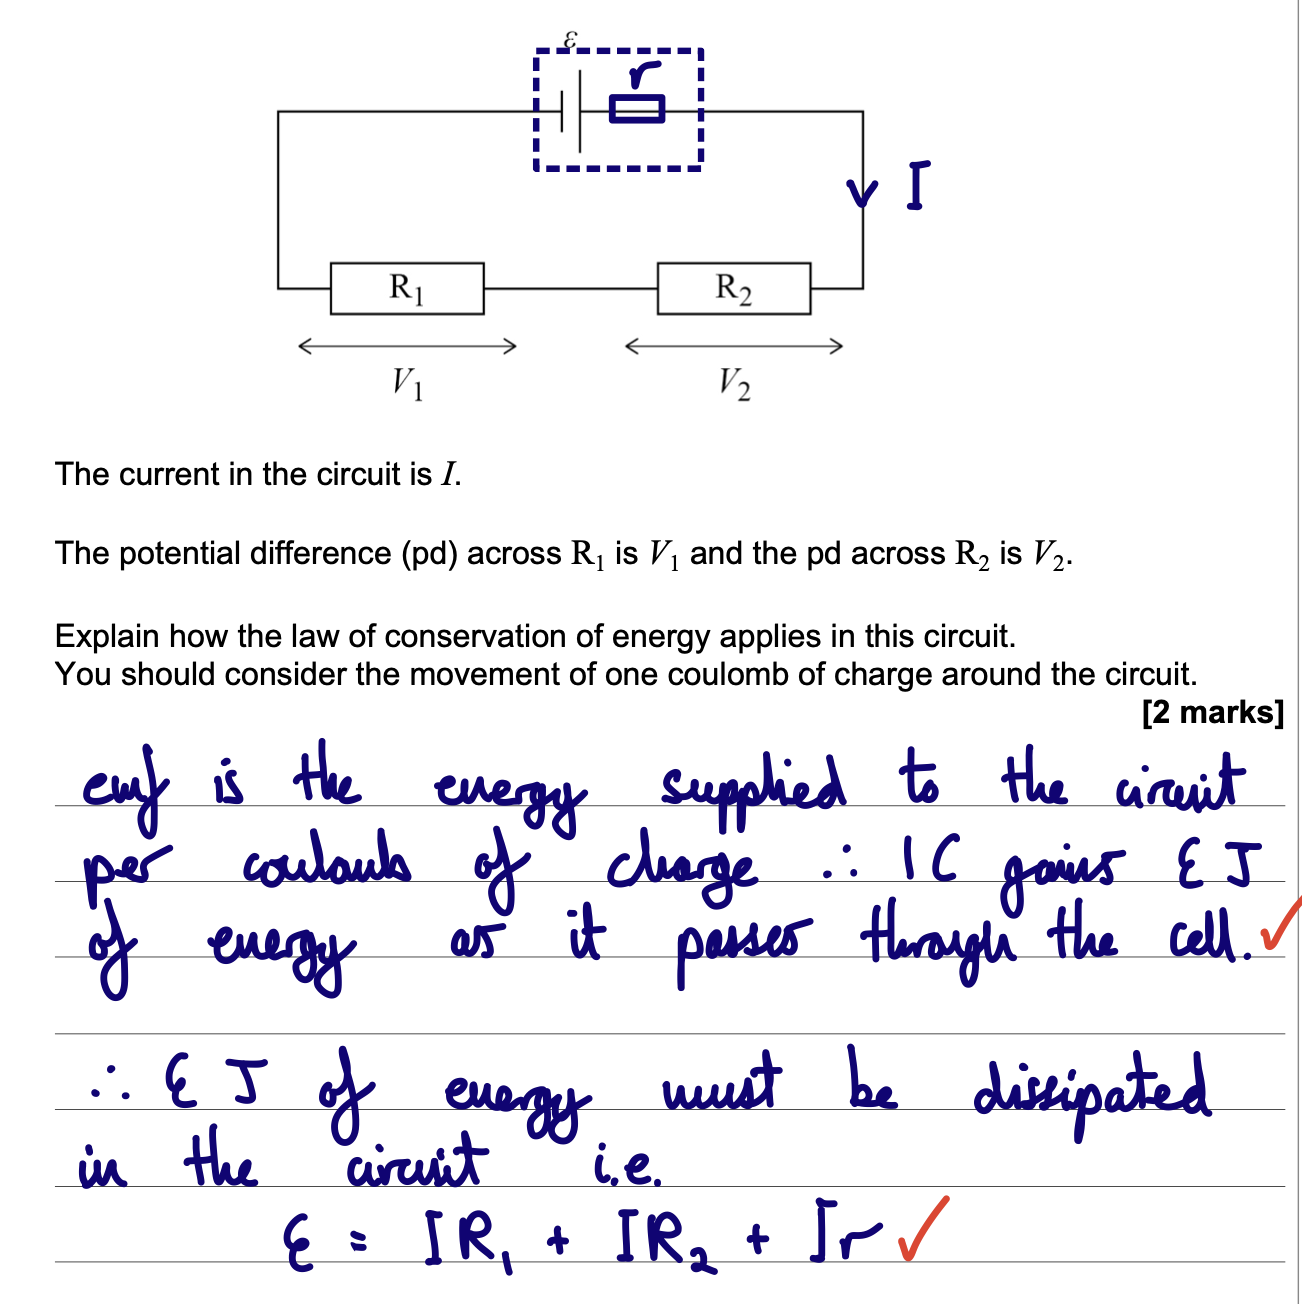 ε
r
I
R₁
R₂
V₁
V₂
The current in the circuit is I.
The potential difference (pd) across R₁ is V₁ and the pd across R₂ is V₂.
Explain how the law of conservation of energy applies in this circuit.
You should consider the movement of one coulomb of charge around the circuit.
[2 marks]
emf is the energy supplied to the circuit
per coulomb of charge ∴ 1C gains ε J
of energy as it passes through the cell. ✓
∴ ε J of energy must be dissipated
in the circuit i.e.
ε = IR₁ + IR₂ + Ir ✓